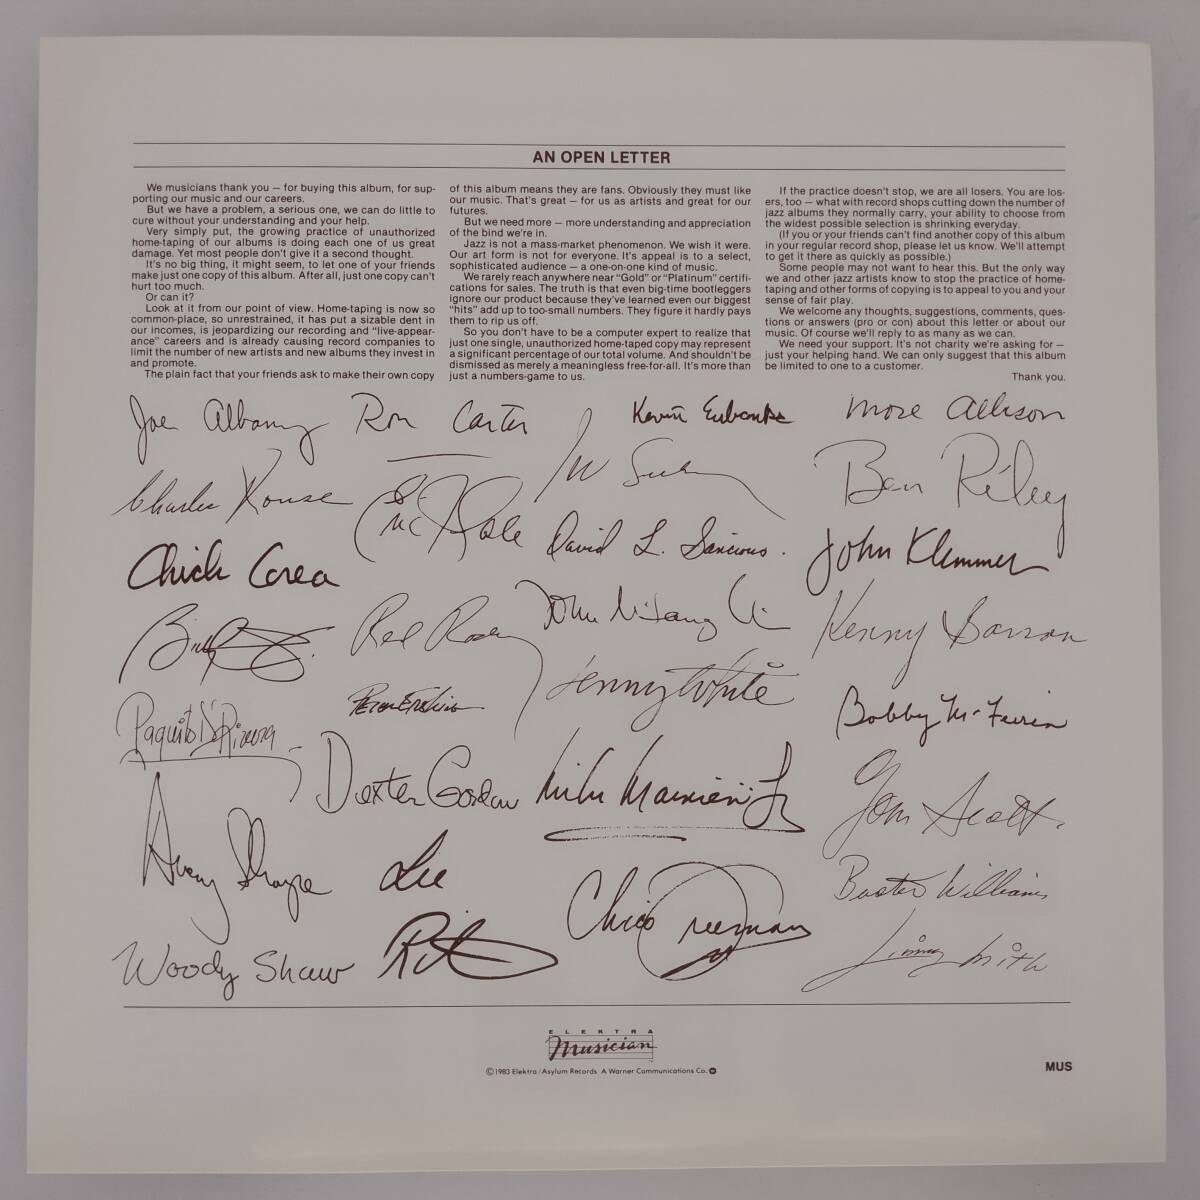 AN OPEN LETTER
We musicians thank you — for buying this album, for sup-
porting our music and our careers.
But we have a problem, a serious one, we can do little to
cure without your understanding and your help.
Very simply put, the growing practice of unauthorized
home-taping of our albums is doing each one of us great
damage. Yet most people don't give it a second thought.
It's no big thing, it might seem, to let one of your friends
make just one copy of this album. After all, just one copy can't
hurt too much.
Or can it?
Look at it from our point of view. Home-taping is now so
common-place, so unrestrained, it has put a sizable dent in
our incomes, is jeopardizing our recording and "live-appear-
ance" careers and is already causing record companies to
limit the number of new artists and new albums they invest in
and promote.
The plain fact that your friends ask to make their own copy
of this album means they are fans. Obviously they must like
our music. That's great — for us as artists and great for our
futures.
But we need more — more understanding and appreciation
of the bind we're in.
Jazz is not a mass-market phenomenon. We wish it were.
Our art form is not for everyone. It's appeal is to a select,
sophisticated audience — a one-on-one kind of music.
We rarely reach anywhere near "Gold" or "Platinum" certifi-
cations for sales. The truth is that even big-time bootleggers
ignore our product because they've learned even our biggest
"hits" add up to too-small numbers. They figure it hardly pays
them to rip us off.
So you don't have to be a computer expert to realize that
just one single, unauthorized home-taped copy may represent
a significant percentage of our total volume. And shouldn't be
dismissed as merely a meaningless free-for-all. It's more than
just a numbers-game to us.
If the practice doesn't stop, we are all losers. You are los-
ers, too — what with record shops cutting down the number of
jazz albums they normally carry, your ability to choose from
the widest possible selection is shrinking everyday.
(If you or your friends can't find another copy of this album
in your regular record shop, please let us know. We'll attempt
to get it there as quickly as possible.)
Some people may not want to hear this. But the only way
we and other jazz artists know to stop the practice of home-
taping and other forms of copying is to appeal to you and your
sense of fair play.
We welcome any thoughts, suggestions, comments, ques-
tions or answers (pro or con) about this letter or about our
music. Of course we'll reply to as many as we can.
We need your support. It's not charity we're asking for —
just your helping hand. We can only suggest that this album
be limited to one to a customer.
Thank you.
Joe Albany Ron Carter Kevin Eubanks Mose Allison
Charlie Rouse Eric Gale Ben Riley
David L. Sancious. John Klemmer
Chick Corea
Red Rodney Kenny Barron
Lenny White
Paquito D'Rivera Peter Erskine Bobby McFerrin
Dexter Gordon Mike Mainieri Jr Tom Scott.
Avery Sharpe Lee
Chico Freeman Buster Williams
Woody Shaw Rit Jimmy Smith
ELEKTRA
Musician
©1983 Elektra/Asylum Records A Warner Communications Co.
MUS